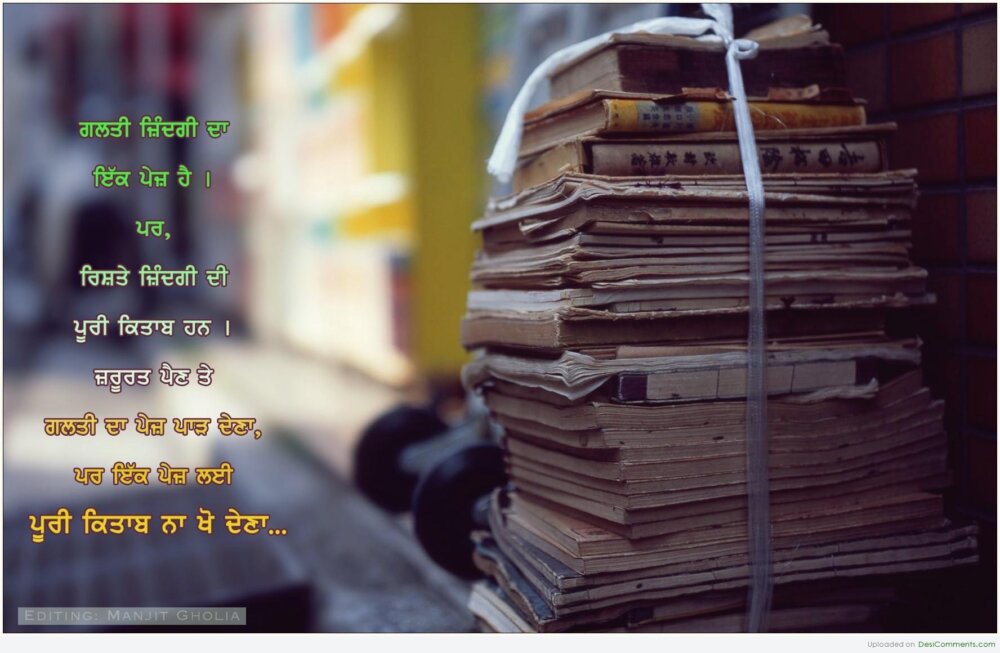 ਗਲਤੀ ਜ਼ਿੰਦਗੀ ਦਾ
ਇੱਕ ਪੇਜ਼ ਹੈ ।
ਪਰ,
ਰਿਸ਼ਤੇ ਜ਼ਿੰਦਗੀ ਦੀ
ਪੂਰੀ ਕਿਤਾਬ ਹਨ ।
ਜ਼ਰੂਰਤ ਪੈਣ ਤੇ
ਗਲਤੀ ਦਾ ਪੇਜ਼ ਪਾੜ ਦੇਣਾ,
ਪਰ ਇੱਕ ਪੇਜ਼ ਲਈ
ਪੂਰੀ ਕਿਤਾਬ ਨਾ ਖੋ ਦੇਣਾ...
EDITING: MANJIT GHOLIA
Uploaded on DesiComments.com